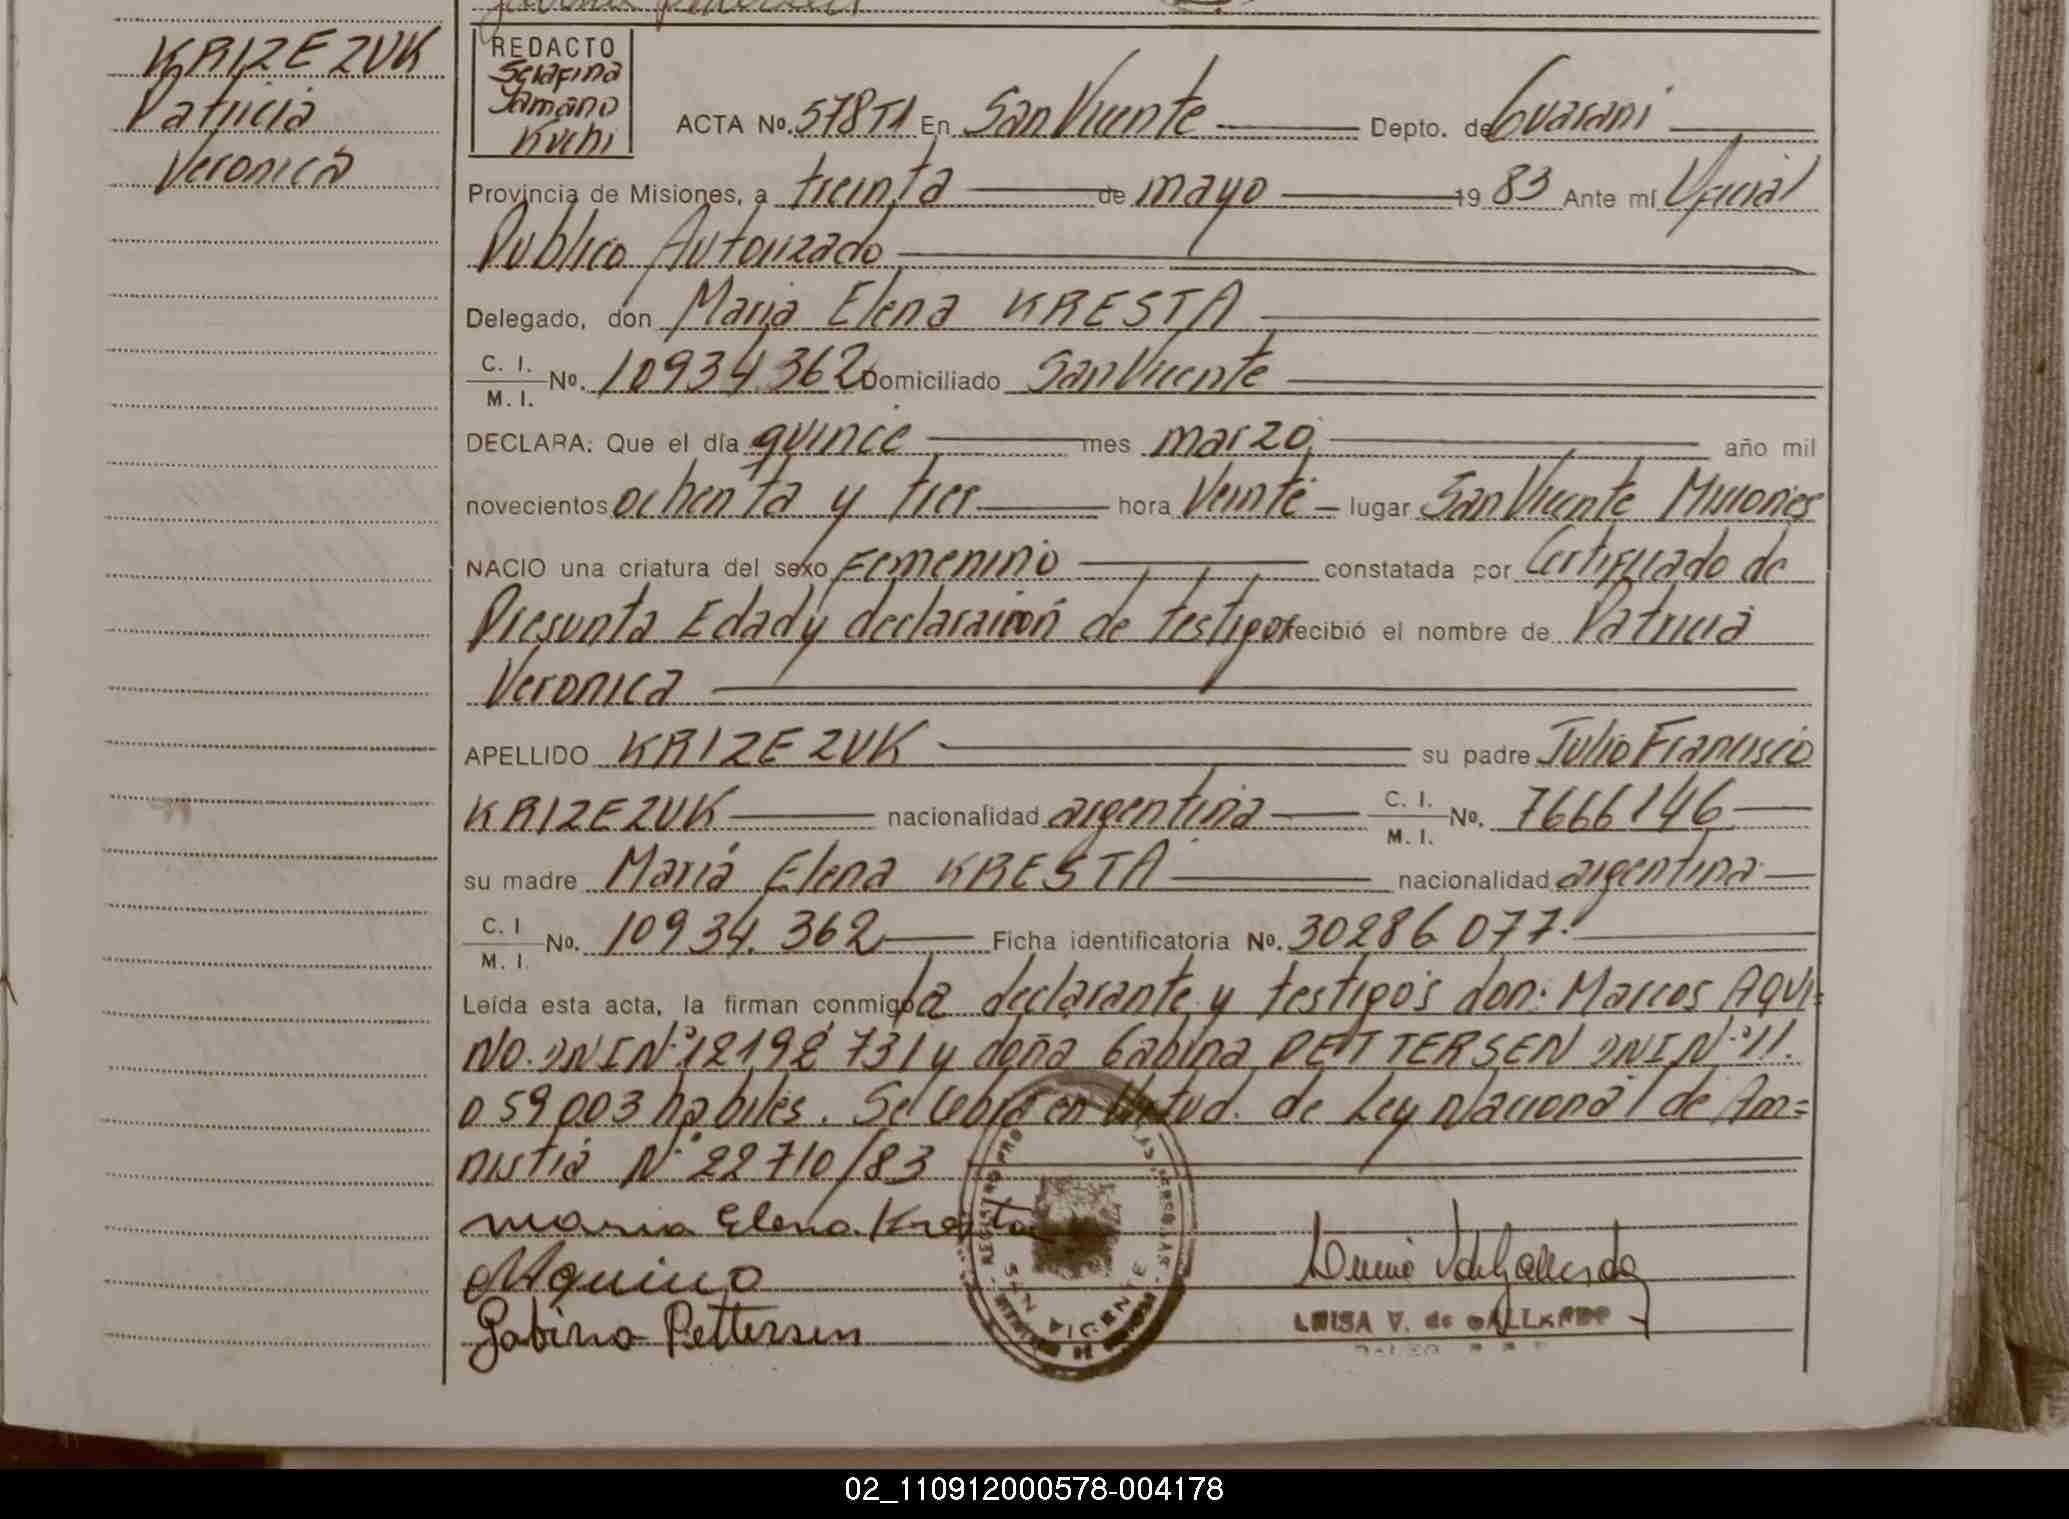 KRIZEZUK
Patricia
Veronica
REDACTO
Serafina
Tamano
Kuchi
ACTA No. 578 T1 En San Vicente Depto. de Guarani
Provincia de Misiones, a treinta de mayo 19 83 Ante mí Oficial
Publico Autorizado
Delegado, don Maria Elena KRESTA
C. I. / M. I. No. 10934.362 Domiciliado San Vicente
DECLARA: Que el día quince mes marzo año mil
novecientos ochenta y tres hora Veinte lugar San Vicente Misiones
NACIO una criatura del sexo Femenino constatada por Certificado de
Presunta Edad y declaración de testigos recibió el nombre de Patricia
Veronica
APELLIDO KRIZEZUK su padre Julio Francisco
KRIZEZUK nacionalidad argentina C. I. / M. I. No. 7666146
su madre Maria Elena KRESTA nacionalidad argentina
C. I / M. I. No. 10934.362 Ficha identificatoria No. 30286077.
Leída esta acta, la firman conmigo la declarante y testigos don: Marcos AQUI=
NO. DNI N° 12192731 y doña Gabina PETTERSEN DNI N° 11.
059003 habiles. Se labra en Virtud. de Ley Nacional de Am=
nistia N° 22710/83
Maria Elena Kresta
MAquino
Gabina Pettersen
SAN VICENTE
LUISA V. de GALLARDO
02_110912000578-004178